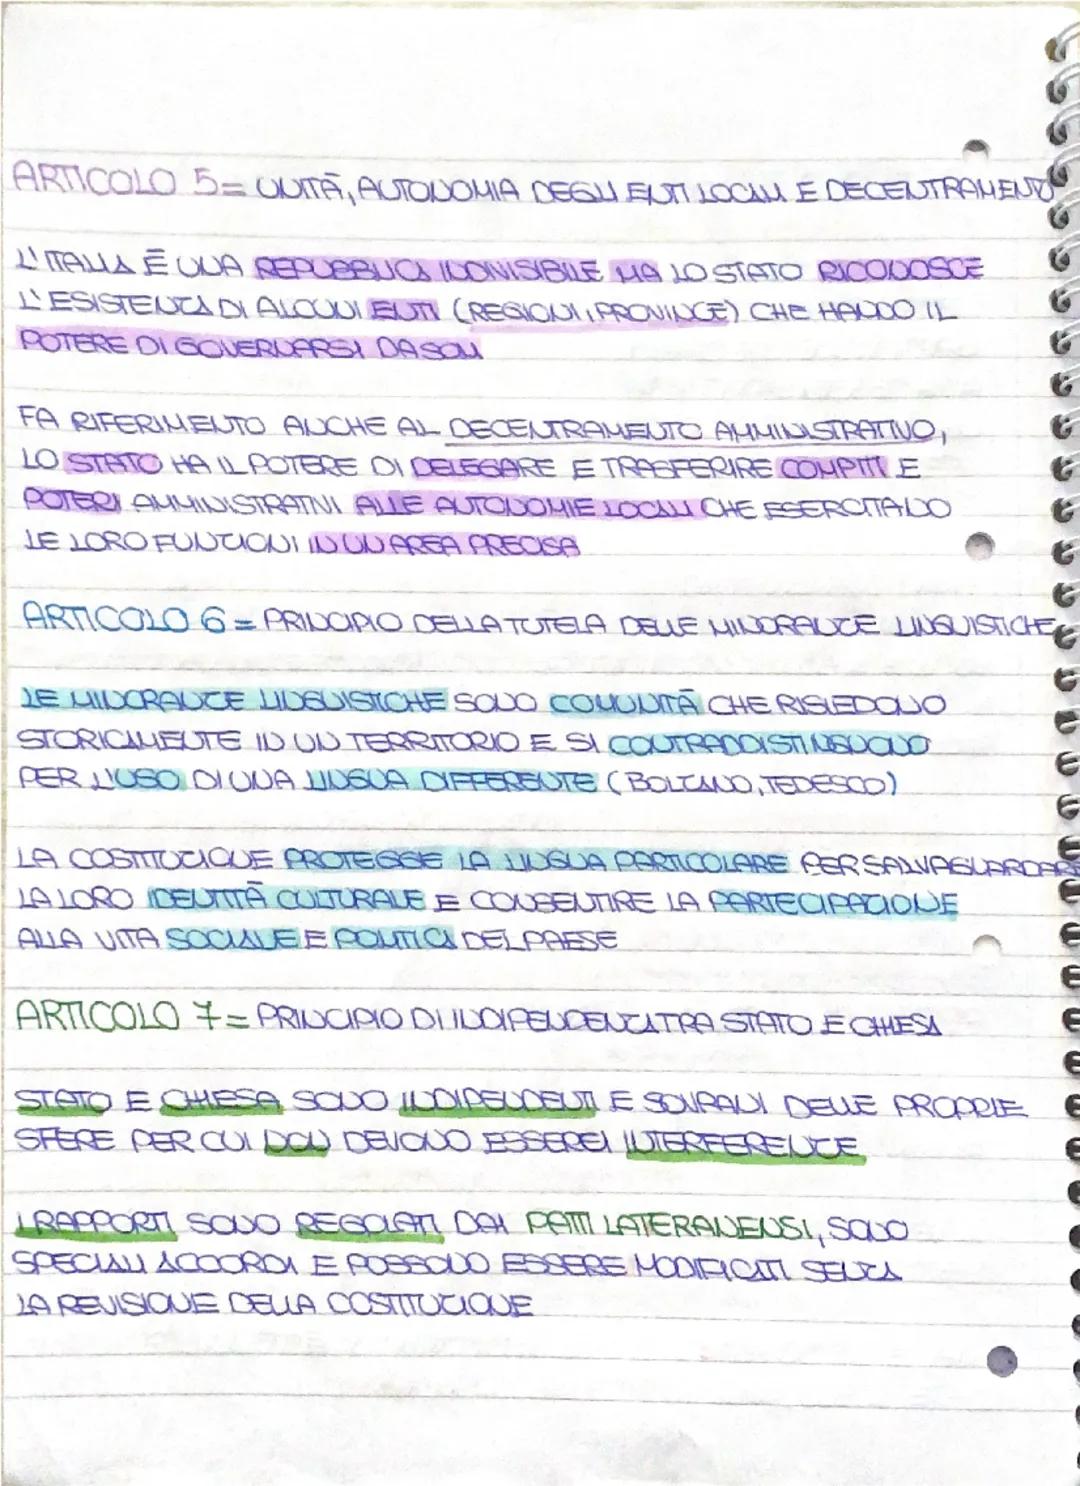 ARTICOLO 5= UNITÀ, AUTONOMIA DEGLI ENTI LOCALI E DECENTRAMENTO
L'ITALIA È UNA REPUBBLICA INDIVISIBILE MA LO STATO RICONOSCE
L'ESISTENZA DI ALCUNI ENTI (REGIONI, PROVINCE) CHE HANNO IL
POTERE DI GOVERNARSI DA SOLI
FA RIFERIMENTO ANCHE AL DECENTRAMENTO AMMINISTRATIVO,
LO STATO HA IL POTERE DI DELEGARE E TRASFERIRE COMPITI E
POTERI AMMINISTRATIVI ALLE AUTONOMIE LOCALI CHE ESERCITANO
LE LORO FUNZIONI IN UN AREA PRECISA
ARTICOLO 6 = PRINCIPIO DELLA TUTELA DELLE MINORANZE LINGUISTICHE
LE MINORANZE LINGUISTICHE SONO COMUNITÀ CHE RISIEDONO
STORICAMENTE IN UN TERRITORIO E SI CONTRADDISTINGUONO
PER L'USO DI UNA LINGUA DIFFERENTE (BOLZANO, TEDESCO)
LA COSTITUZIONE PROTEGGE LA LINGUA PARTICOLARE PER SALVAGUARDARE
LA LORO IDENTITÀ CULTURALE E CONSENTIRE LA PARTECIPAZIONE
ALLA VITA SOCIALE E POLITICA DEL PAESE
ARTICOLO 7= PRINCIPIO DI INDIPENDENZA TRA STATO E CHIESA
STATO E CHIESA SONO INDIPENDENTI E SOVRANI DELLE PROPRIE
SFERE PER CUI NON DEVONO ESSERCI INTERFERENZE
I RAPPORTI SONO REGOLATI DAI PATTI LATERANENSI, SONO
SPECIALI ACCORDI E POSSONO ESSERE MODIFICATI SENZA
LA REVISIONE DELLA COSTITUZIONE